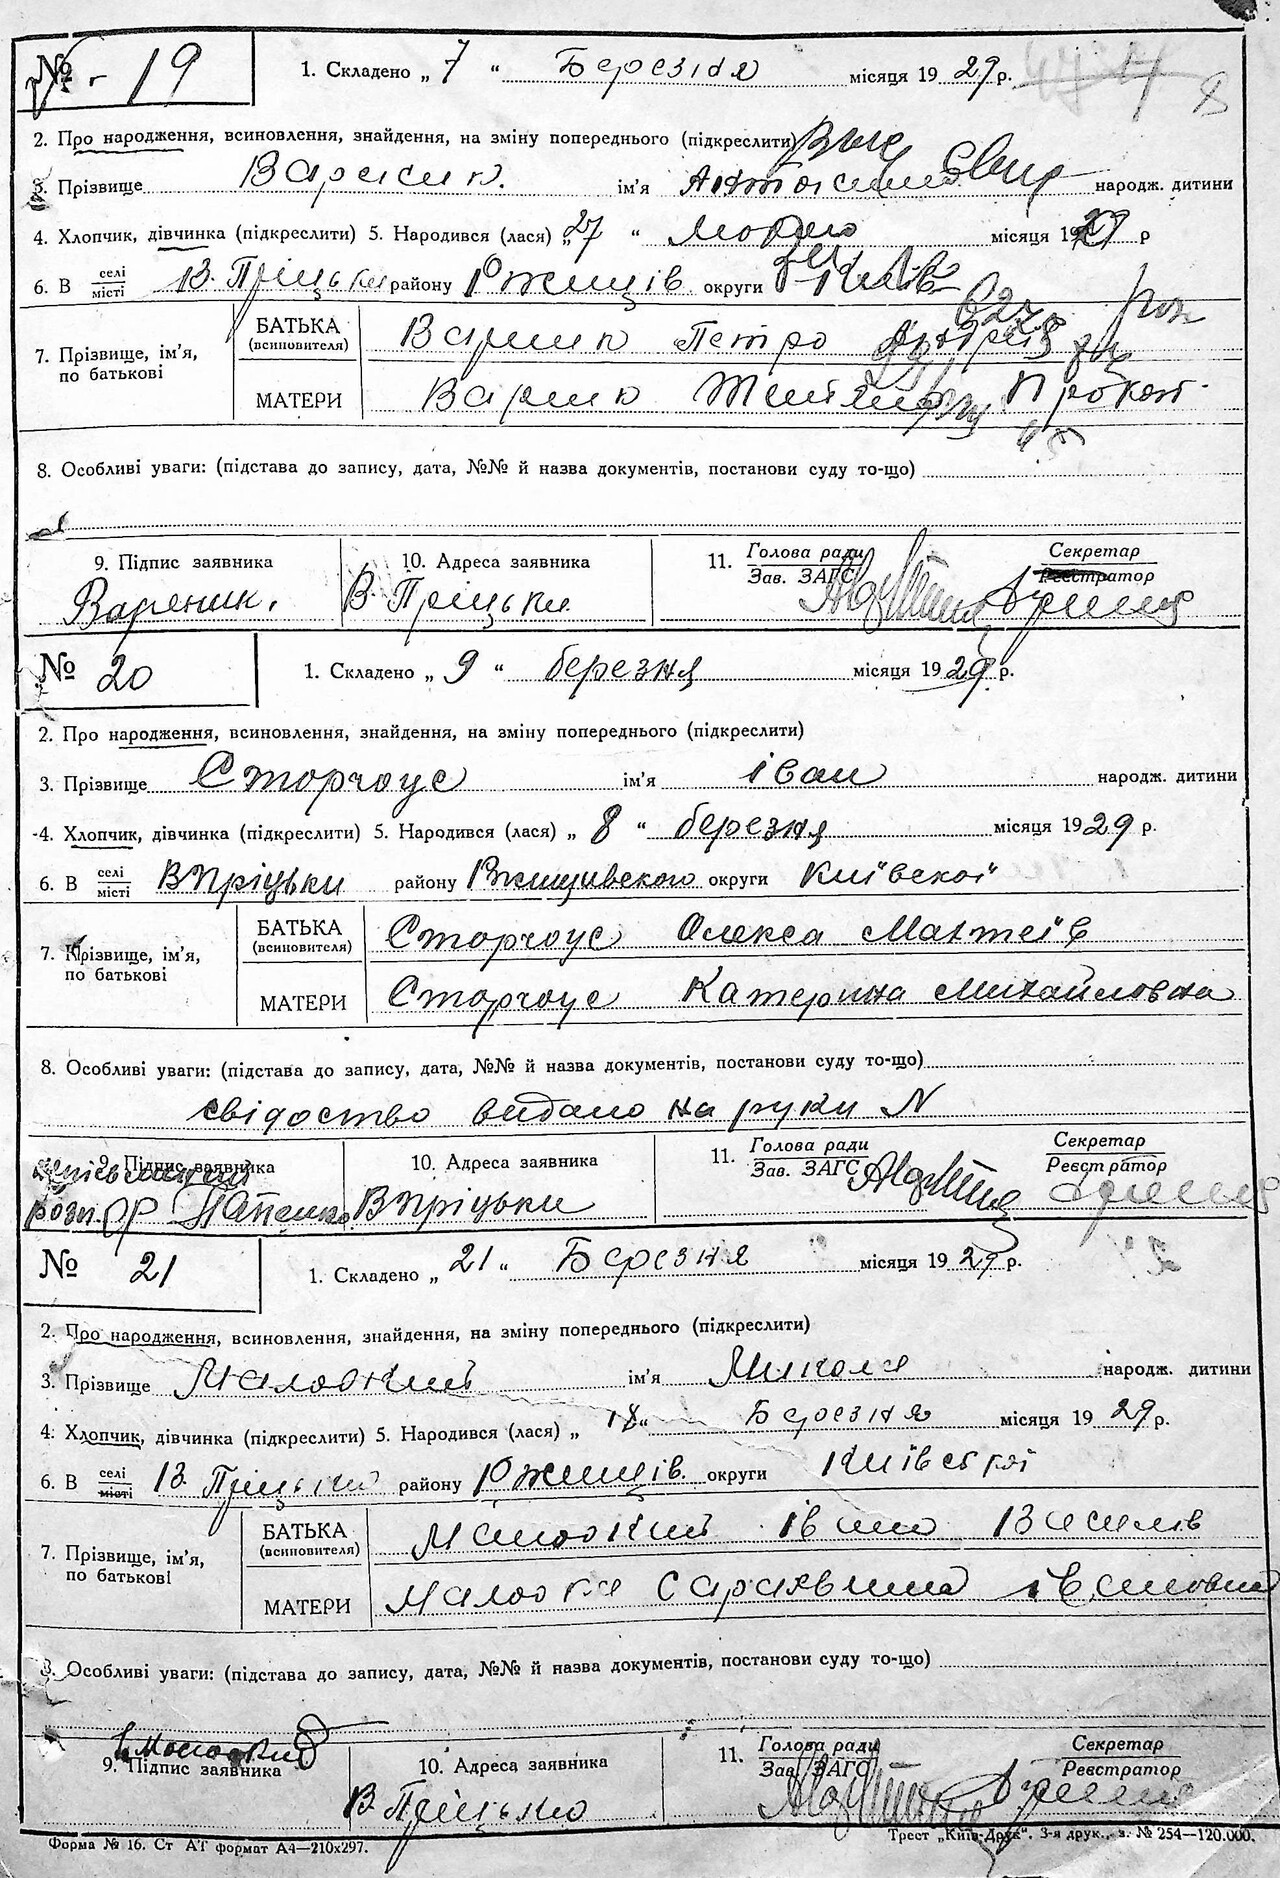 № 19
1. Складено „ 7 “ Березня місяця 1929 р.
2. Про народження, всиновлення, знайдення, на зміну попереднього (підкреслити)
3. Прізвище ім'я народж. дитини
4. Хлопчик, дівчинка (підкреслити) 5. Народився (лася) „ 27 “ місяця 1929 р
6. В селі місті В. Пріцьки району Ржищів. округи
7. Прізвище, ім'я, по батькові
БАТЬКА (всиновителя) Петро
МАТЕРИ Прокоп
8. Особливі уваги: (підстава до запису, дата, №№ й назва документів, постанови суду то-що)
9. Підпис заявника
10. Адреса заявника
11. Голова ради Зав. ЗАГС
Секретар Реєстратор
Вареник. В. Пріцьки
№ 20
1. Складено „ 9 “ березня місяця 1929 р.
2. Про народження, всиновлення, знайдення, на зміну попереднього (підкреслити)
3. Прізвище Сторчоус ім'я іван народж. дитини
4. Хлопчик, дівчинка (підкреслити) 5. Народився (лася) „ 8 “ березня місяця 1929 р.
6. В селі місті В Пріцьки району Ржищивского округи Київскої
7. Прізвище, ім'я, по батькові
БАТЬКА (всиновителя) Сторчоус Олекса Мактеїв
МАТЕРИ Сторчоус Катерина Михайловна
8. Особливі уваги: (підстава до запису, дата, №№ й назва документів, постанови суду то-що)
свідоство видано на руки N
9. Підпис заявника
10. Адреса заявника
11. Голова ради Зав. ЗАГС
Секретар Реєстратор
В Пріцьки
№ 21
1. Складено „ 21 “ Березня місяця 1929 р.
2. Про народження, всиновлення, знайдення, на зміну попереднього (підкреслити)
3. Прізвище ім'я Микола народж. дитини
4. Хлопчик, дівчинка (підкреслити) 5. Народився (лася) „ 18 “ Березня місяця 1929 р.
6. В селі місті В. Пріцьки району Ржищів. округи Київської
7. Прізвище, ім'я, по батькові
БАТЬКА (всиновителя) іван Василів
МАТЕРИ івановна
8. Особливі уваги: (підстава до запису, дата, №№ й назва документів, постанови суду то-що)
9. Підпис заявника
10. Адреса заявника
11. Голова ради Зав. ЗАГС
Секретар Реєстратор
В. Пріцько
Форма № 16. Ст АТ формат А4—210х297.
Трест „Київ-Друк“. 3-я друк., з. № 254—120.000.